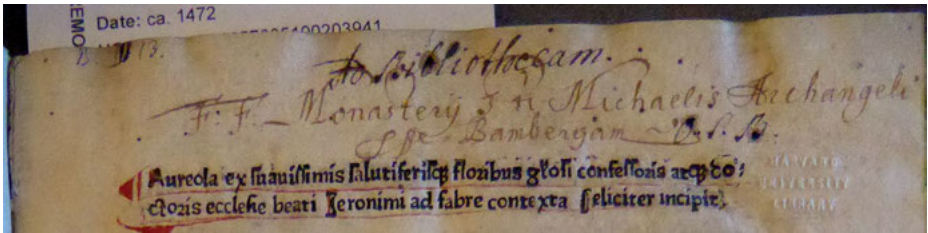 Date: ca. 1472
Ad Bibliothecam.
F. F. Monasterij S ti Michaelis Archangeli
Bambergam O. S. B.
Aureola ex suauissimis salutiferisqꝫ floribus gl'osi confessoris atqꝫ do⸗
ctoris ecclesie beati Jeronimi ad fabre contexta feliciter incipit;
HARVARD
UNIVERSITY
LIBRARY